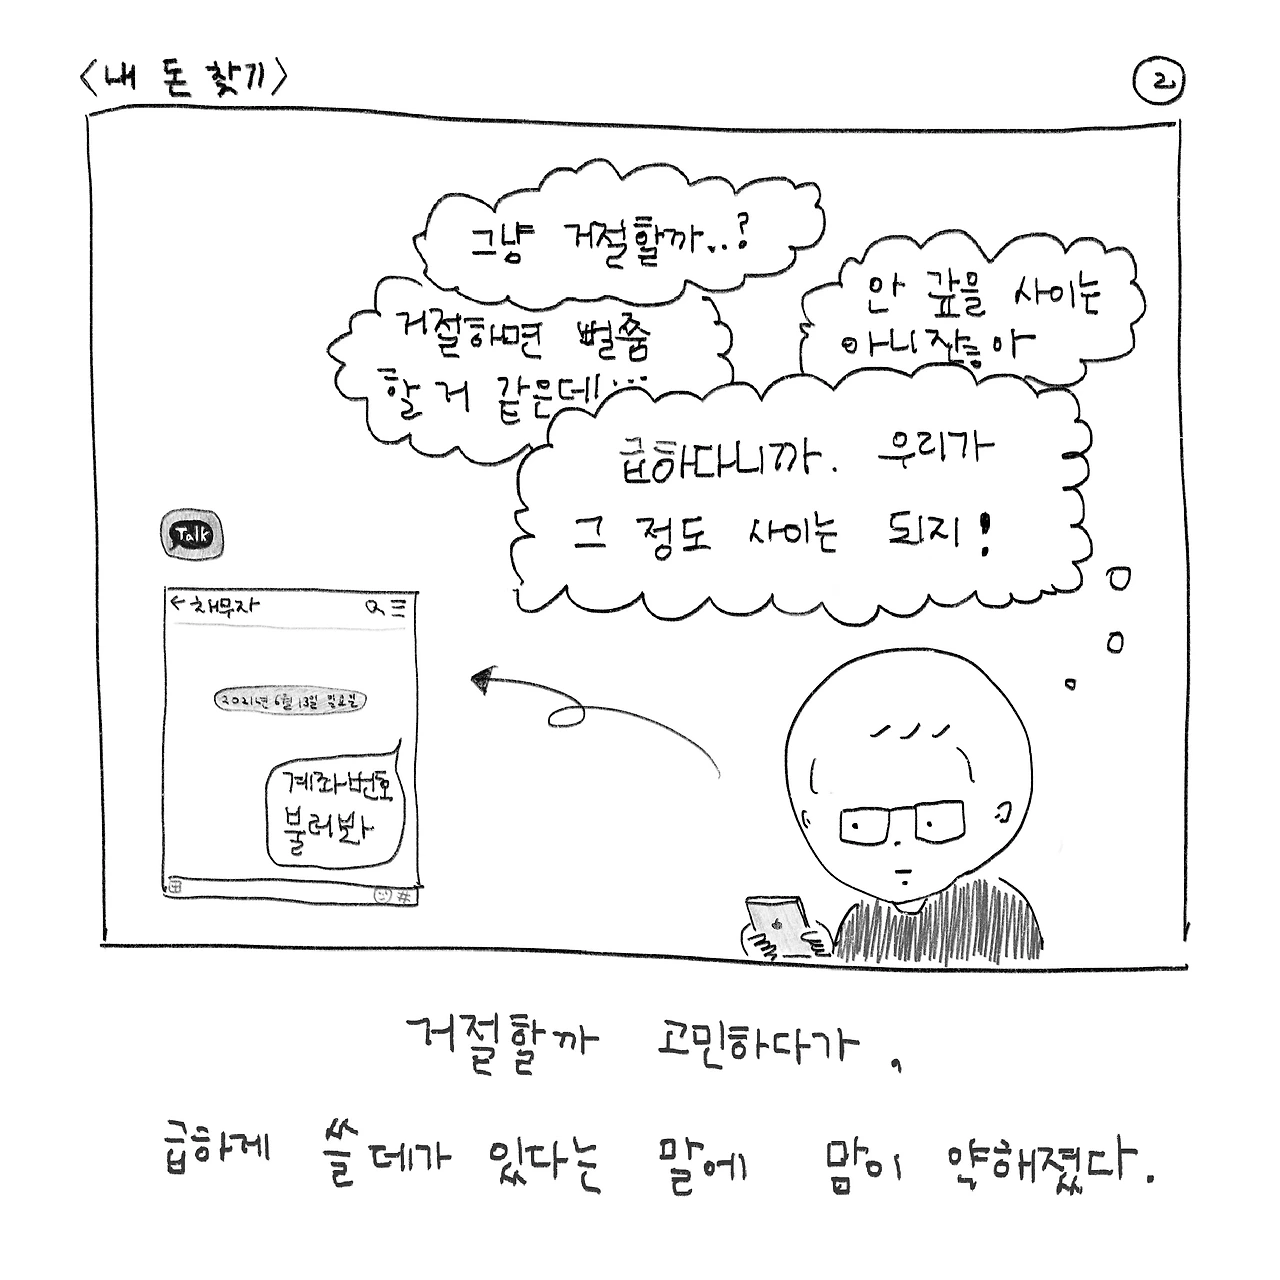 <내 돈 찾기>
2
그냥 거절할까..?
거절하면 뻘쭘
할 거 같은데...
안 갚을 사이는
아니잖아
급하다니까. 우리가
그 정도 사이는 되지!
Talk
채무자
2021년 6월 13일 일요일
계좌번호
불러봐
#
거절할까 고민하다가,
급하게 쓸데가 있다는 말에 맘이 약해졌다.